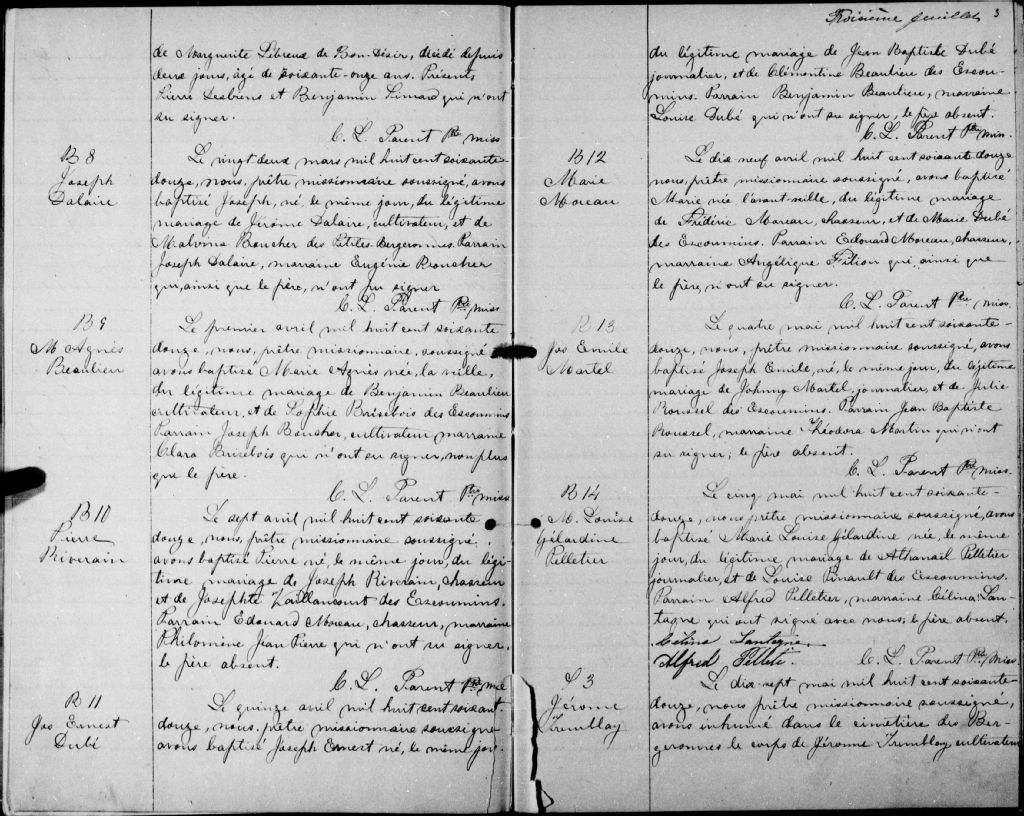 de Marguerite Lebreux de Bon-Désir, décédé depuis
deux jours, âgé de soixante-onze ans. Présents
Pierre Lesbiens et Benjamin Simard qui n'ont
su signer.
C. L. Parent Ptre miss
B 8
Joseph
Dalaire
Le vingt deux mars mil huit cent soixante-
douze, nous, prêtre missionnaire soussigné, avons
baptisé Joseph, né, le même jour, du légitime
mariage de Jérôme Dalaire, cultivateur, et de
Malvina Boucher des Petites-Bergeronnes. Parrain
Joseph Dalaire, marraine Eugénie Boucher
qui, ainsi que le père, n'ont pu signer
C. L. Parent Ptre miss
B 9
M. Agnès
Beaulieu
Le premier avril mil huit cent soixante
douze, nous, prêtre missionnaire, soussigné
avons baptisé Marie Agnès née, la veille,
du légitime mariage de Benjamin Beaulieu
cultivateur, et de Sophie Brisebois des Escoumins
Parrain Joseph Boucher, cultivateur marraine
Clara Brisebois qui n'ont su signer, non plus
que le père.
C. L. Parent Ptre miss
B 10
Pierre
Riverain
Le sept avril mil huit cent soixante
douze, nous, prêtre missionnaire soussigné,
avons baptisé Pierre né, le même jour, du légi-
time mariage de Joseph Riverain, chasseur
et de Josephte Vaillancourt des Escoumins.
Parrain Edouard Moreau, chasseur, marraine
Philomène Jean Pierre qui n'ont su signer,
le père absent.
C. L. Parent Ptre miss
B 11
Jos Ernest
Dubé
Le quinze avril mil huit cent soixant-
douze, nous, prêtre missionnaire soussigné
avons baptisé Joseph Ernest né, le même jour
Troisième feuillet 3
du légitime mariage de Jean Baptiste Dubé
journalier, et de Clémentine Beaulieu des Escou-
mins. Parrain Benjamin Beaulieu, marraine
Louise Dubé qui n'ont su signer, le père absent.
C. L. Parent Ptre miss.
B 12
Marie
Moreau
Le dix-neuf avril mil huit cent soixante douze
nous, prêtre missionnaire soussigné, avons baptisé
Marie née l'avant-veille, du légitime mariage
de Frédéric Moreau, chasseur, et de Marie Dubé
des Escoumins. Parrain Edouard Moreau, chasseur,
marraine Angélique Filion qui ainsi que
le père, n'ont su signer.
C. L. Parent Ptre miss.
B 13
Jos Emile
Martel
Le quatre mai mil huit cent soixante-
douze, nous, prêtre missionnaire soussigné, avons
baptisé Joseph Emile, né, le même jour, du légitime
mariage de Johnny Martel, journalier, et de Julie
Roussel des Escoumins. Parrain Jean Baptiste
Roussel, marraine Théodora Martin qui n'ont
su signer; le père absent.
C. L. Parent Ptre miss.
B 14
M. Louise
Gélardine
Pelletier
Le cinq mai mil huit cent soixante-
douze, nous prêtre missionnaire soussigné, avons
baptisé Marie Louise Gélardine née, le même
jour, du légitime mariage de Athanail Pelletier
journalier, et de Louise Pinault des Escoumins.
Parrain Alfred Pelletier, marraine Célina San-
tagne qui ont signé avec nous; le père absent.
Célina Santagne
Alfred Pelleti.
C. L. Parent Ptre miss
S 3
Jérome
Tremblay
Le dix-sept mai mil huit cent soixante-
douze, nous prêtre missionnaire soussigné,
avons inhumé dans le cimetière des Ber-
geronnes le corps de Jéromme Tremblay, cultivateur